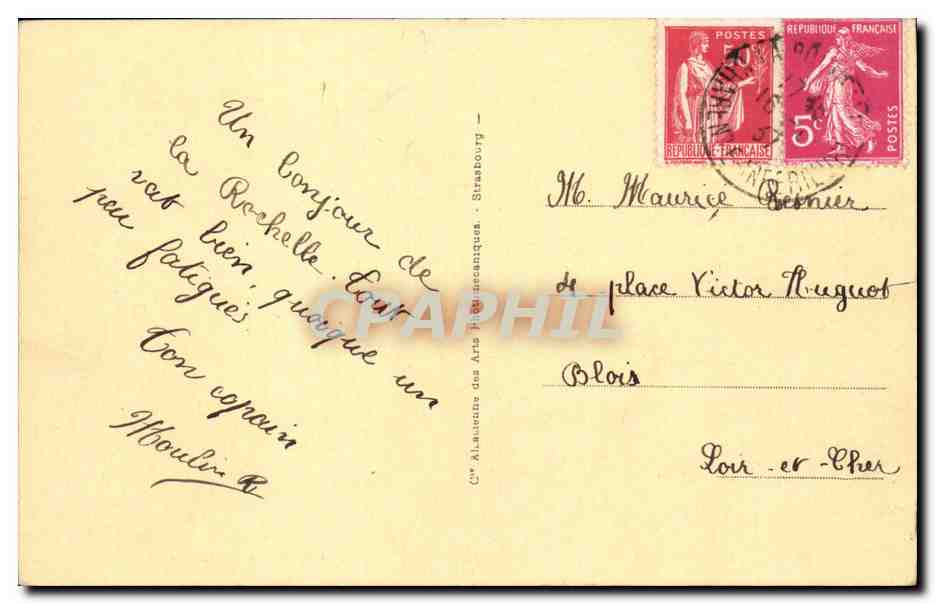 Un bonjour de
la Rochelle. Tout
vat bien, quoique un
peu fatigués.
Ton copain
Moulin R
Cie Alsacienne des Arts Photomécaniques. - Strasbourg -
POSTES
50
REPUBLIQUE FRANÇAISE
REPUBLIQUE FRANÇAISE
5c
POSTES
M. Maurice
4 place Victor Huguot
Blois
Loir-et-Cher
CPAPHIL